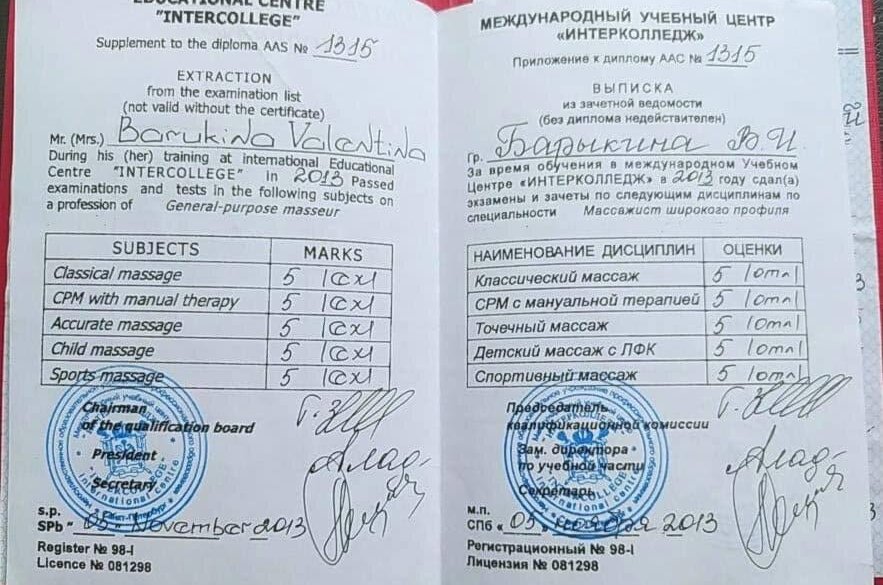 EDUCATIONAL CENTRE
"INTERCOLLEGE"
Supplement to the diploma AAS № 1315
EXTRACTION
from the examination list
(not valid without the certificate)
Mr. (Mrs.) Barukina Valentina
During his (her) training at international Educational
Centre "INTERCOLLEGE" in 2013 Passed
examinations and tests in the following subjects on
a profession of General-purpose masseur
SUBJECTS MARKS
Classical massage 5 (exl
CPM with manual therapy 5 (exl
Accurate massage 5 (exl
Child massage 5 (exl
Sports massage 5 (exl
Chairman
of the qualification board
President
Secretary
s.p.
SPb " 05 " November 2013
Register № 98-I
Licence № 081298
МЕЖДУНАРОДНЫЙ УЧЕБНЫЙ ЦЕНТР
«ИНТЕРКОЛЛЕДЖ»
Приложение к диплому ААС № 1315
ВЫПИСКА
из зачетной ведомости
(без диплома недействителен)
Гр. Барыкина В.И.
За время обучения в международном Учебном
Центре «ИНТЕРКОЛЛЕДЖ» в 2013 году сдал(а)
экзамены и зачеты по следующим дисциплинам по
специальности Массажист широкого профиля
НАИМЕНОВАНИЕ ДИСЦИПЛИН ОЦЕНКИ
Классический массаж 5 (отл)
СРМ с мануальной терапией 5 (отл)
Точечный массаж 5 (отл)
Детский массаж с ЛФК 5 (отл)
Спортивный массаж 5 (отл)
Председатель
квалификационной комиссии
Зам. директора
по учебной части
Секретарь
м.п.
СПб « 05 » ноября 2013
Регистрационный № 98-I
Лицензия № 081298